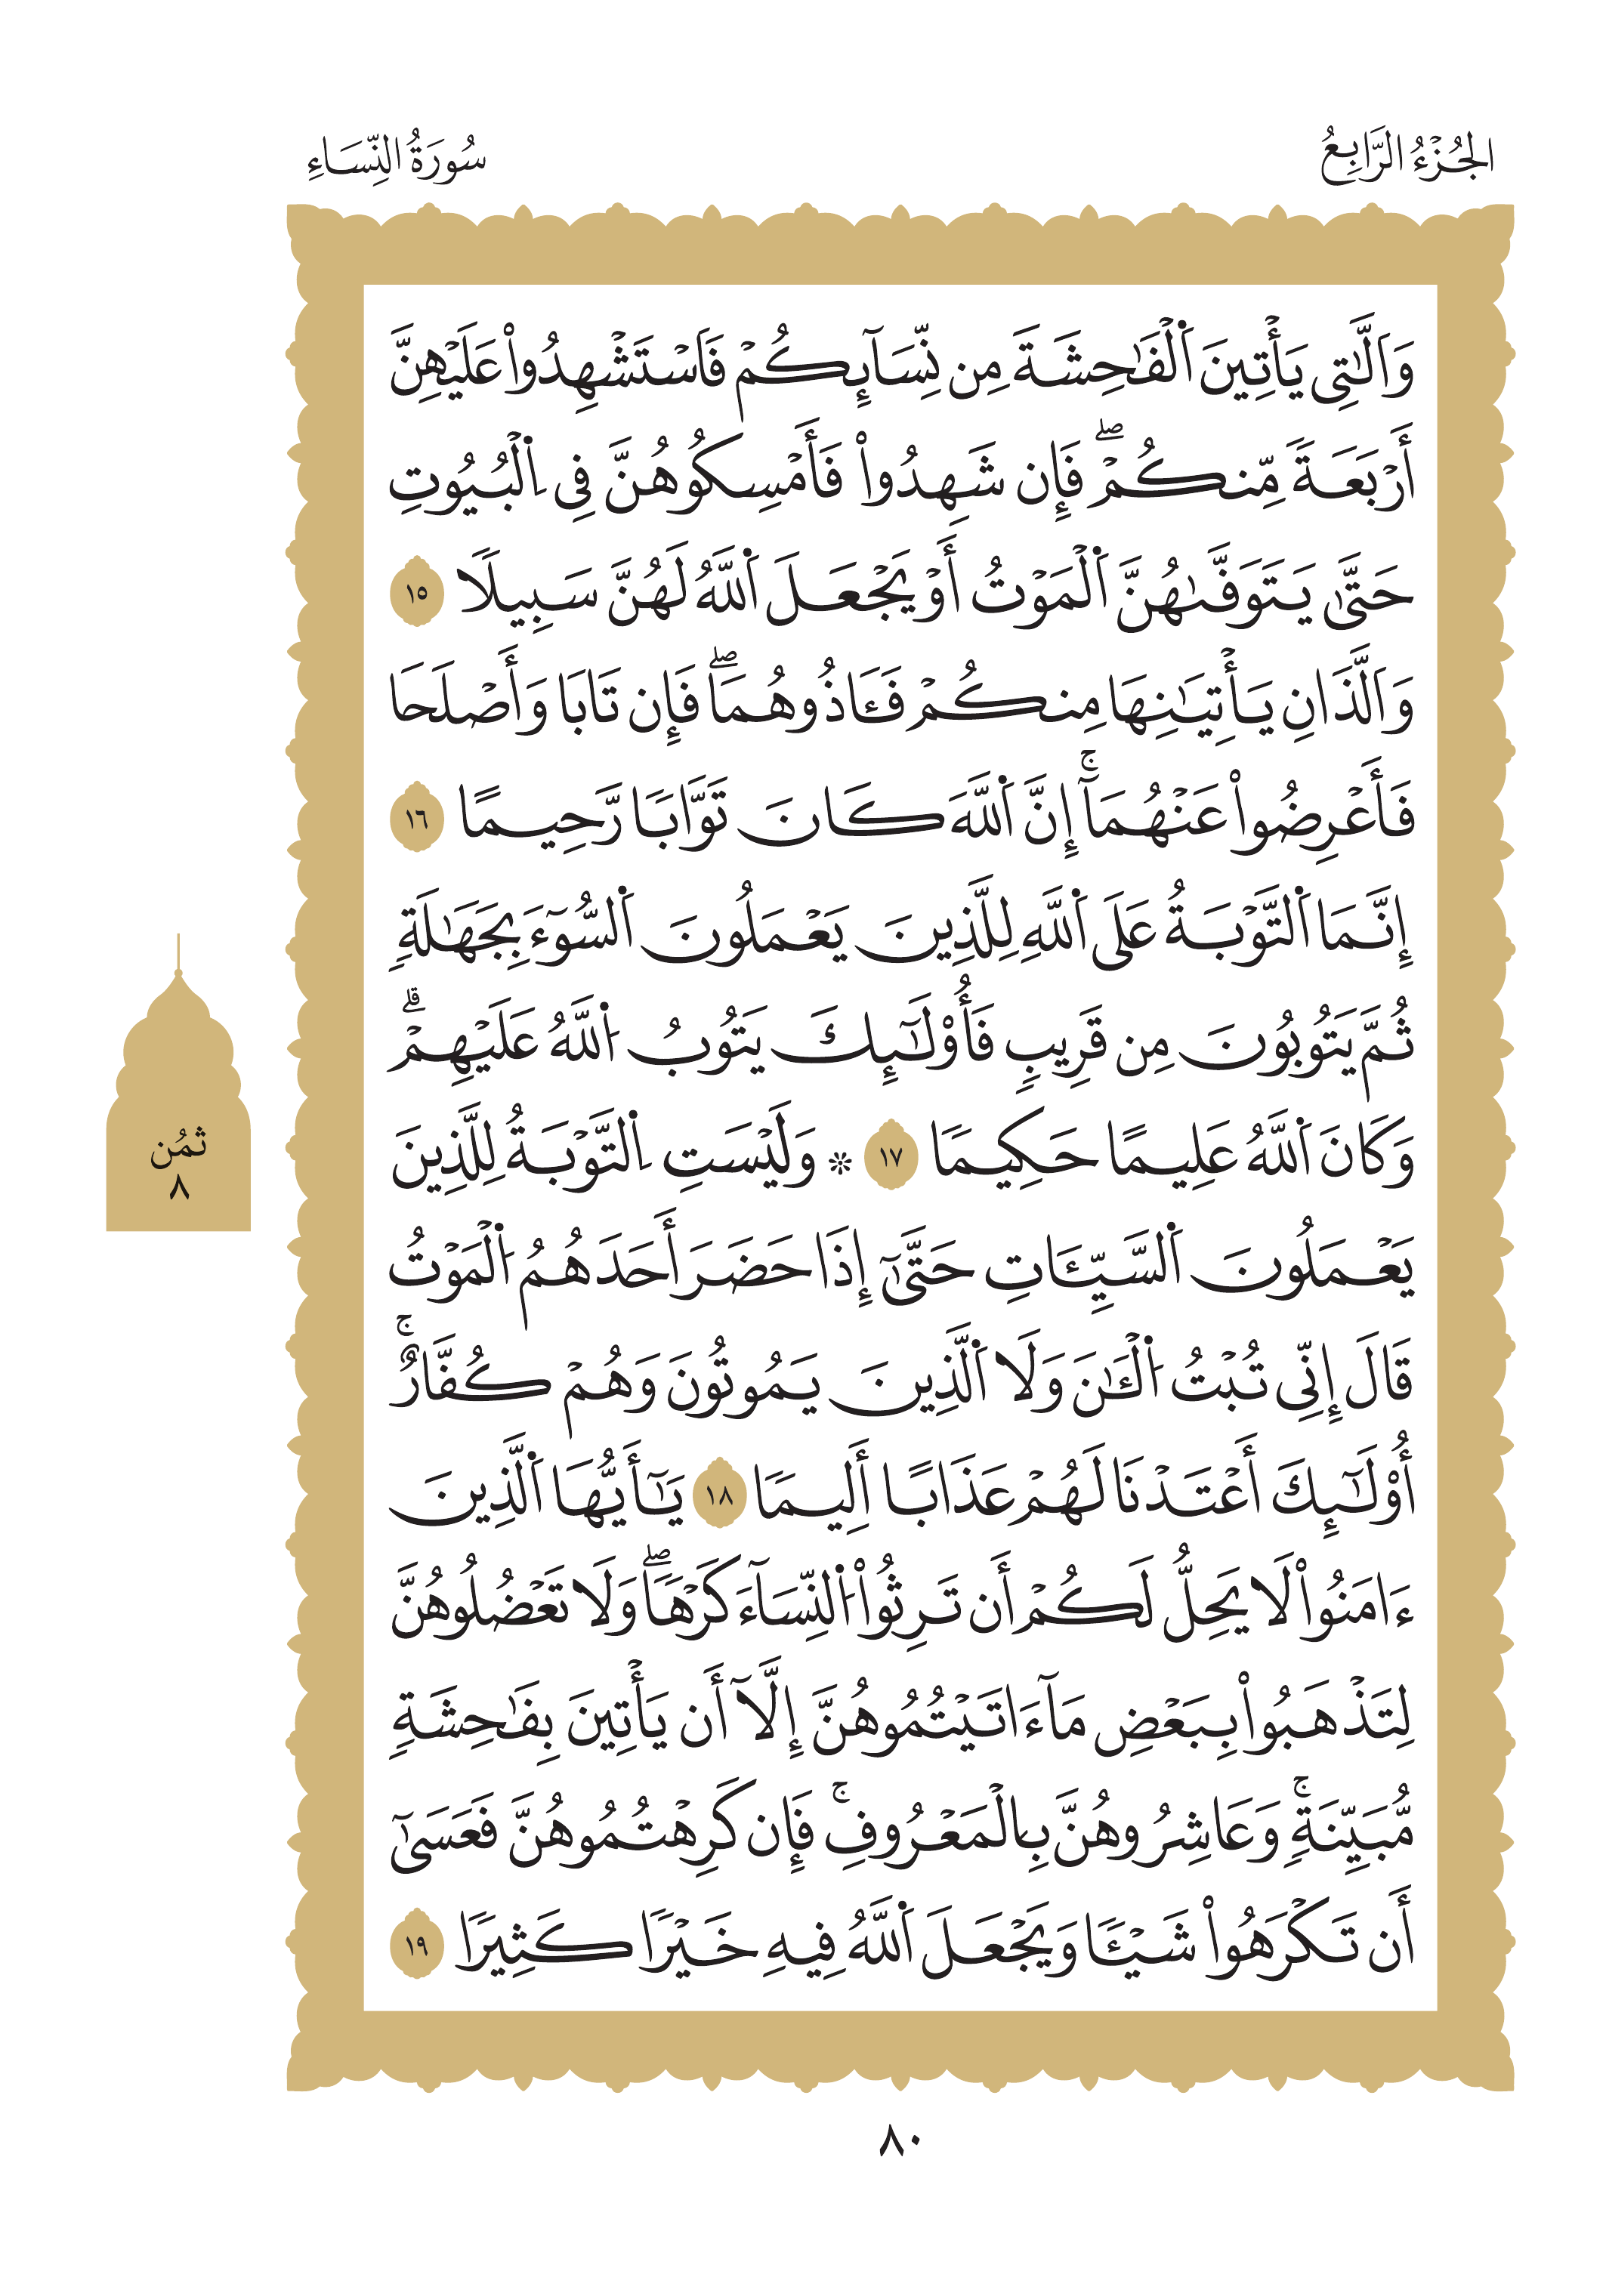 الجُزْءُ الرَّابِعُ
سُورَةُ النِّسَاءِ
وَاَلَّٰتِي يَأۡتِينَ اَ۬لۡفَٰحِشَةَ مِن نِّسَآئِكُمۡ فَاَسۡتَشۡهِدُواْ عَلَيۡهِنَّ
أَرۡبَعَةٗ مِّنكُمۡۖ فَإِن شَهِدُواْ فَأَمۡسِكُوهُنَّ فِي اِ۬لۡبُيُوتِ
حَتَّىٰ يَتَوَفَّىٰهُنَّ اَ۬لۡمَوۡتُ أَوۡ يَجۡعَلَ اَ۬للَّهُ لَهُنَّ سَبِيلٗا ١٥
وَاَلَّذَانِ يَأۡتِيَٰنِهَا مِنكُمۡ فَـَٔاذُوهُمَاۖ فَإِن تَابَا وَأَصۡلَحَا
فَأَعۡرِضُواْ عَنۡهُمَآۚ إِنَّ اَ۬للَّهَ كَانَ تَوَّابٗا رَّحِيمًا ١٦
إِنَّمَا اَ۬لتَّوۡبَةُ عَلَى اَ۬للَّهِ لِلَّذِينَ يَعۡمَلُونَ اَ۬لسُّوٓءَ بِجَهَٰلَةٖ
ثُمَّ يَتُوبُونَ مِن قَرِيبٖ فَأُوْلَٰٓئِكَ يَتُوبُ اُ۬للَّهُ عَلَيۡهِمۡۗ
وَكَانَ اَ۬للَّهُ عَلِيمًا حَكِيمٗا ١٧ ۞ وَلَيۡسَتِ اِ۬لتَّوۡبَةُ لِلَّذِينَ
يَعۡمَلُونَ اَ۬لسَّيِّـَٔاتِ حَتَّىٰٓ إِذَا حَضَرَ أَحَدَهُمُ اُ۬لۡمَوۡتُ
قَالَ إِنِّي تُبۡتُ اُ۬لۡـَٰٔنَ وَلَا اَ۬لَّذِينَ يَمُوتُونَ وَهُمۡ كُفَّارٌۚ
أُوْلَٰٓئِكَ أَعۡتَدۡنَا لَهُمۡ عَذَابًا أَلِيمٗا ١٨ يَٰٓأَيُّهَا اَ۬لَّذِينَ
ءَامَنُواْ لَا يَحِلُّ لَكُمۡ أَن تَرِثُواْ اُ۬لنِّسَآءَ كَرۡهٗاۖ وَلَا تَعۡضُلُوهُنَّ
لِتَذۡهَبُواْ بِبَعۡضِ مَآ ءَاتَيۡتُمُوهُنَّ إِلَّآ أَن يَأۡتِينَ بِفَٰحِشَةٖ
مُّبَيِّنَةٖۚ وَعَاشِرُوهُنَّ بِالۡمَعۡرُوفِۚ فَإِن كَرِهۡتُمُوهُنَّ فَعَسَىٰٓ
أَن تَكۡرَهُواْ شَيۡـٔٗا وَيَجۡعَلَ اَ۬للَّهُ فِيهِ خَيۡرٗا كَثِيرٗا ١٩
ثُمُن
٨
٨٠